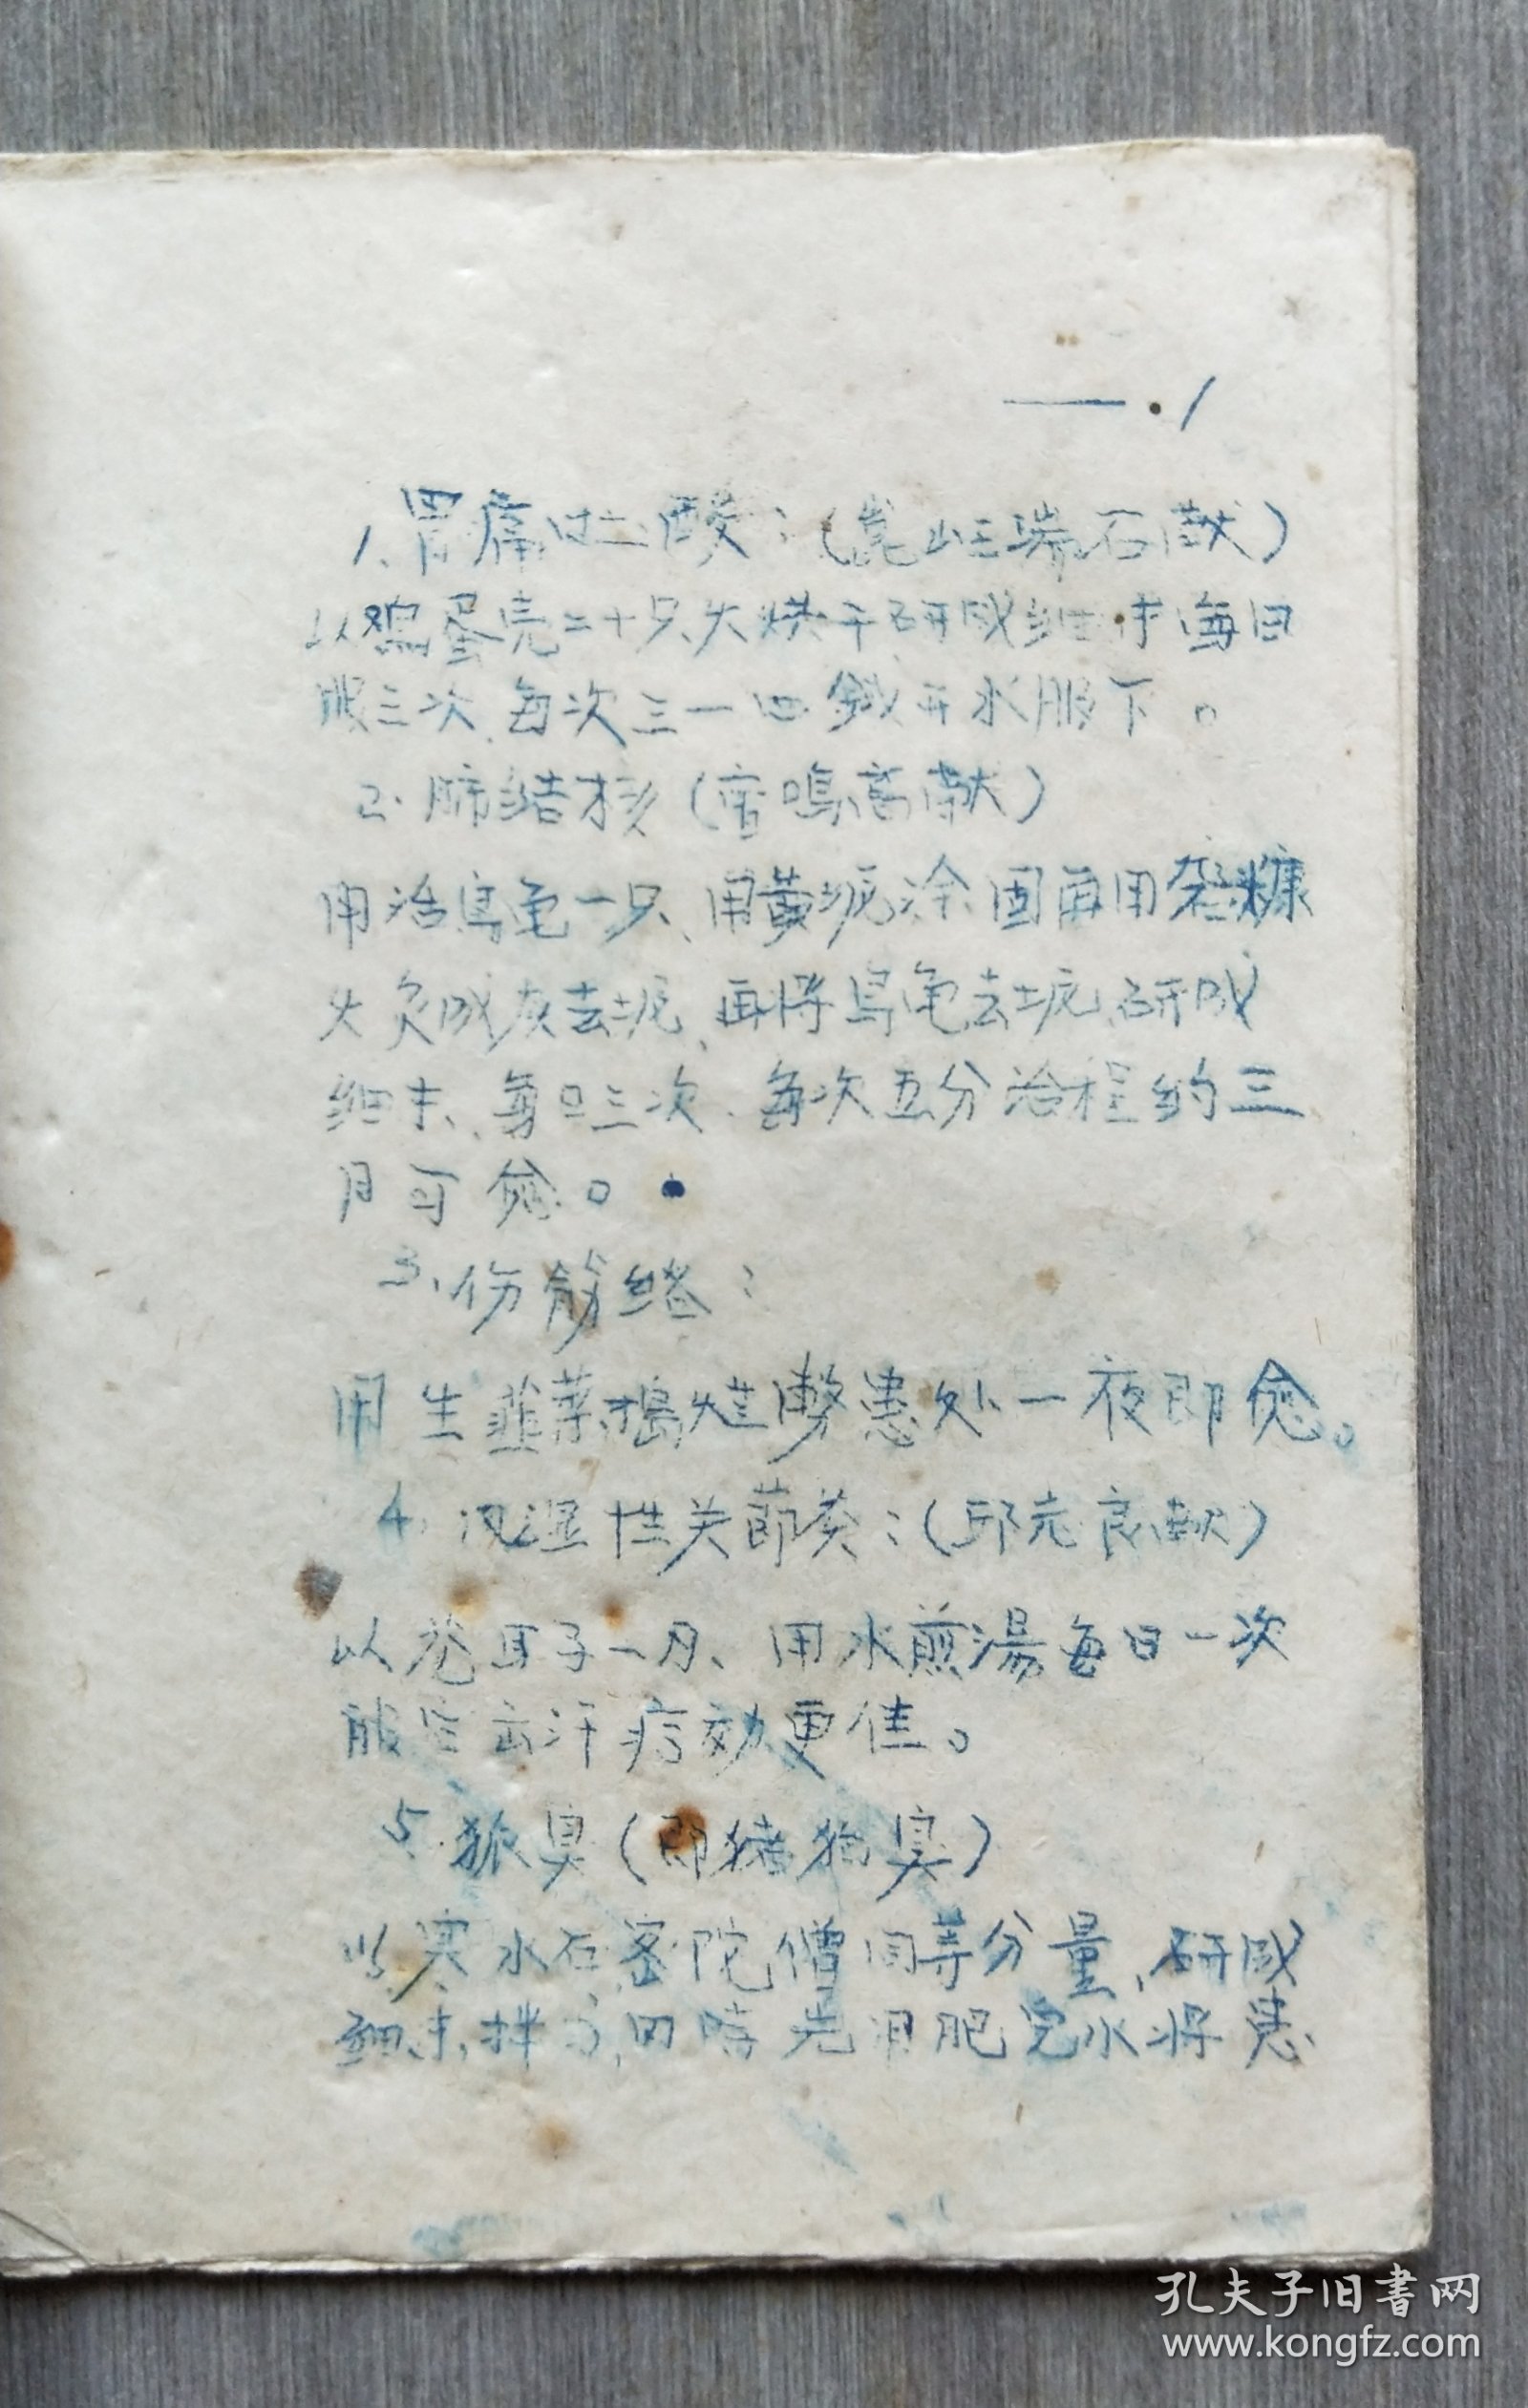 一.1
1、胃痛吐酸：(崑山王瑞石献)
以鸡蛋壳二十只火烘干研成细末每日
服三次、每次三一四錢开水服下。
2.肺结核(鳴高献)
用活烏龟一只、用黄坭涂固再用砻糠
火灸成灰去坭、再将烏龟去坭、研成
细末、每日三次、每次五分治程约三
月可愈。
3、伤筋络：
用生韮菜搗烂敷患处一夜即愈。
4.风湿性关莭炎：(邱志良献)
以苍耳子一月、用水煎湯每日一次
服后出汗疗効更佳。
5.狐臭(即猪狗臭)
以寒水石、密陀僧同等分量、研成
细末、拌匀、用時先用肥皂水将患
孔夫子旧书网
www.kongfz.com